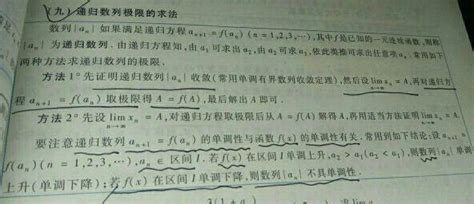 (九) 递归数列极限的求法
数列{aₙ}如果满足递归方程 aₙ₊₁=f(aₙ)(n=1,2,3,…),其中f是已知的一元连续函数,则称
{aₙ}为递归数列.由递归方程知,由a₁可求出a₂,由a₂可求a₃,依此类推可求出任意项aₙ.常用如下
两种方法求递归数列的极限.
方法1°先证明递归数列{aₙ}收敛(常用单调有界数列收敛定理),然后设lim xₙ=A,再对递归方
n→∞
程aₙ₊₁=f(aₙ)取极限得A=f(A),最后解出A即可.
方法2°先设lim xₙ=A,对递归方程取极限后从A=f(A)解得A,再用适当方法证明lim xₙ=A.
n→∞
n→∞
要注意递归数列aₙ₊₁=f(aₙ)的单调性与函数f(x)的单调性有关.常用到如下结论:设aₙ₊₁=
f(aₙ)(n=1,2,3,…),aₙ∈区间I.若f(x)在区间I单调上升,a₂>a₁(a₂<a₁),则数列{aₙ}单调
上升(单调下降);若f(x)在区间I单调下降,则数列{aₙ}不具单调性.